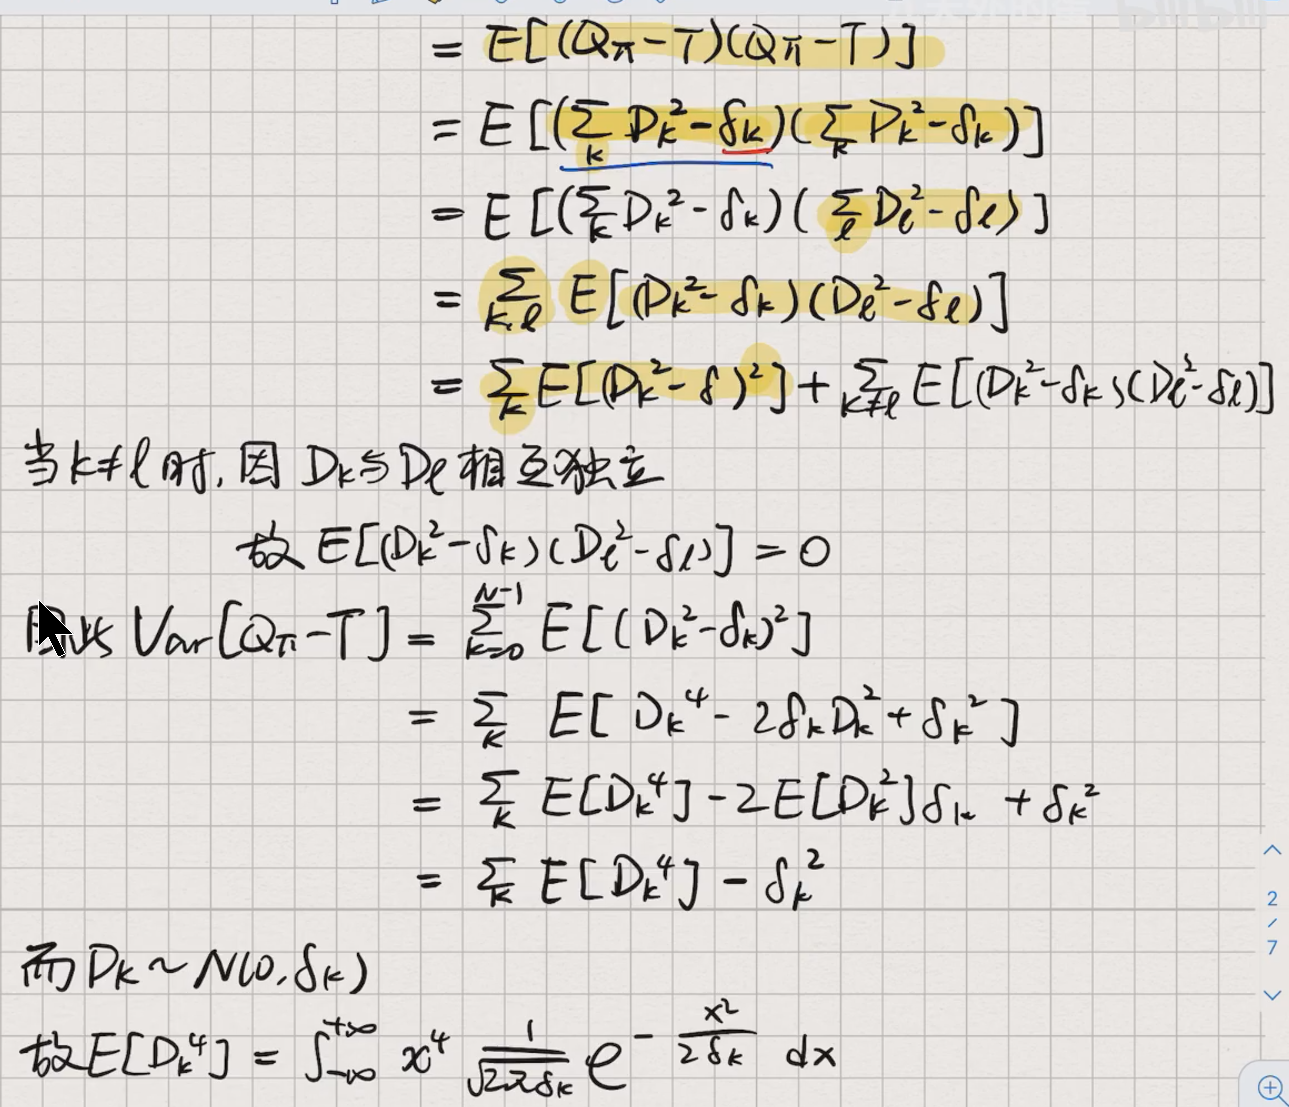 bilibili
= E[(Qπ-T)(Qπ-T)]
= E[(∑_k D_k²-δ_k)(∑_k D_k²-δ_k)]
= E[(∑_k D_k²-δ_k)(∑_l D_l²-δ_l)]
= ∑_{k,l} E[(D_k²-δ_k)(D_l²-δ_l)]
= ∑_k E[(D_k²-δ)²] + ∑_{k≠l} E[(D_k²-δ_k)(D_l²-δ_l)]
当k≠l时,因D_k与D_l相互独立
故E[(D_k²-δ_k)(D_l²-δ_l)] = 0
Var[Qπ-T] = ∑_{k=0}^{N-1} E[(D_k²-δ_k)²]
= ∑_k E[D_k⁴-2δ_kD_k²+δ_k²]
= ∑_k E[D_k⁴]-2E[D_k²]δ_k+δ_k²
= ∑_k E[D_k⁴]-δ_k²
而D_k~N(0,δ_k)
故E[D_k⁴] = ∫_{-∞}^{+∞} x⁴ 1/√(2πδ_k) e^{-x²/(2δ_k)} dx
2
/
7